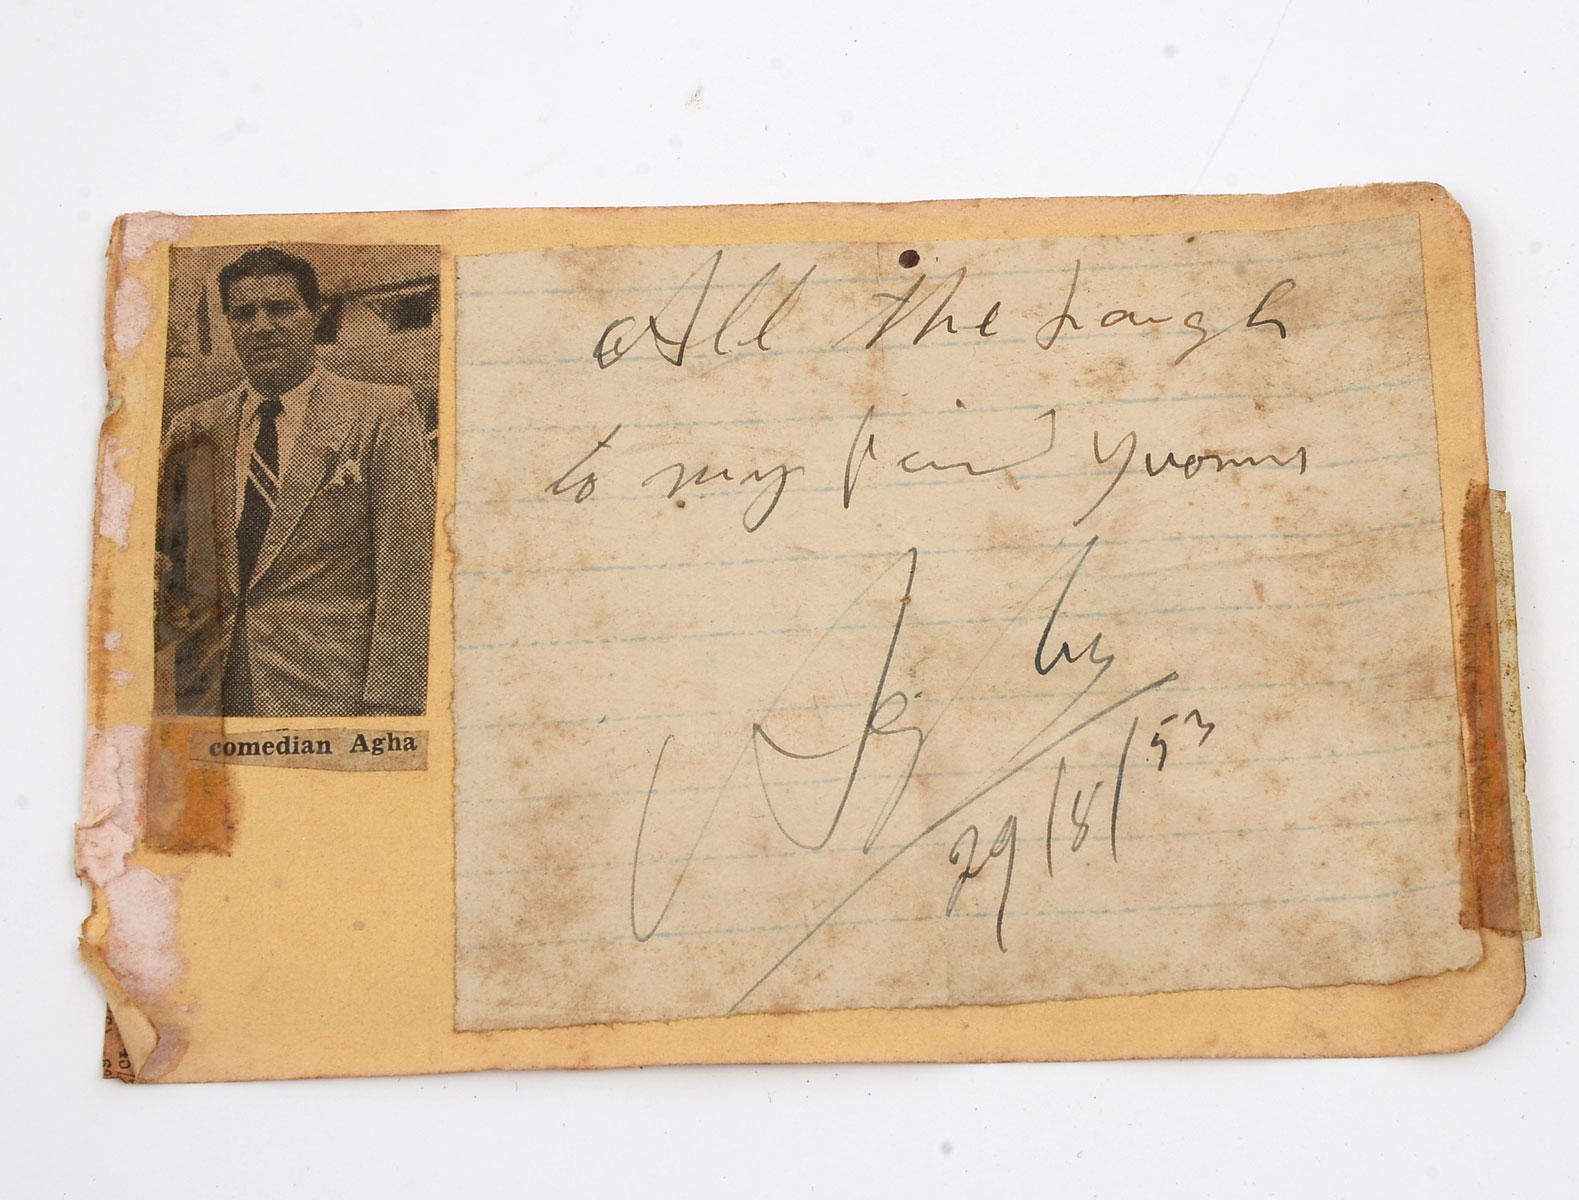 All the Laugh
to my friend Yvonne
Agha
29/8/53
comedian Agha